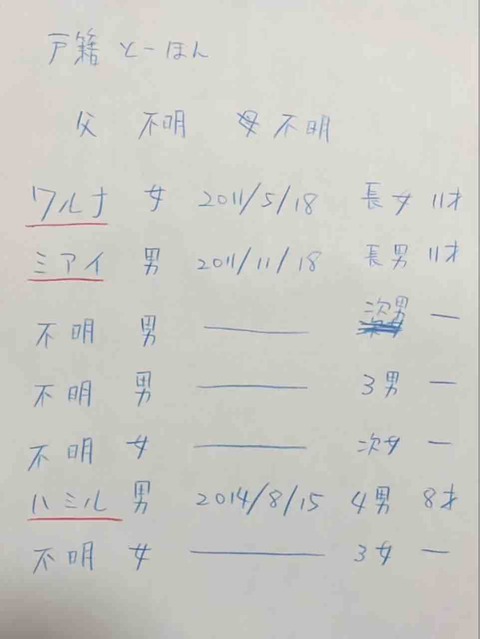 戸籍 とーほん
父 不明 母 不明
ワルナ 女 2011/5/18 長女 11才
ミアイ 男 2011/11/18 長男 11才
不明 男 ― 次男 ―
不明 男 ― 3男 ―
不明 女 ― 次女 ―
ハミル 男 2014/8/15 4男 8才
不明 女 ― 3女 ―